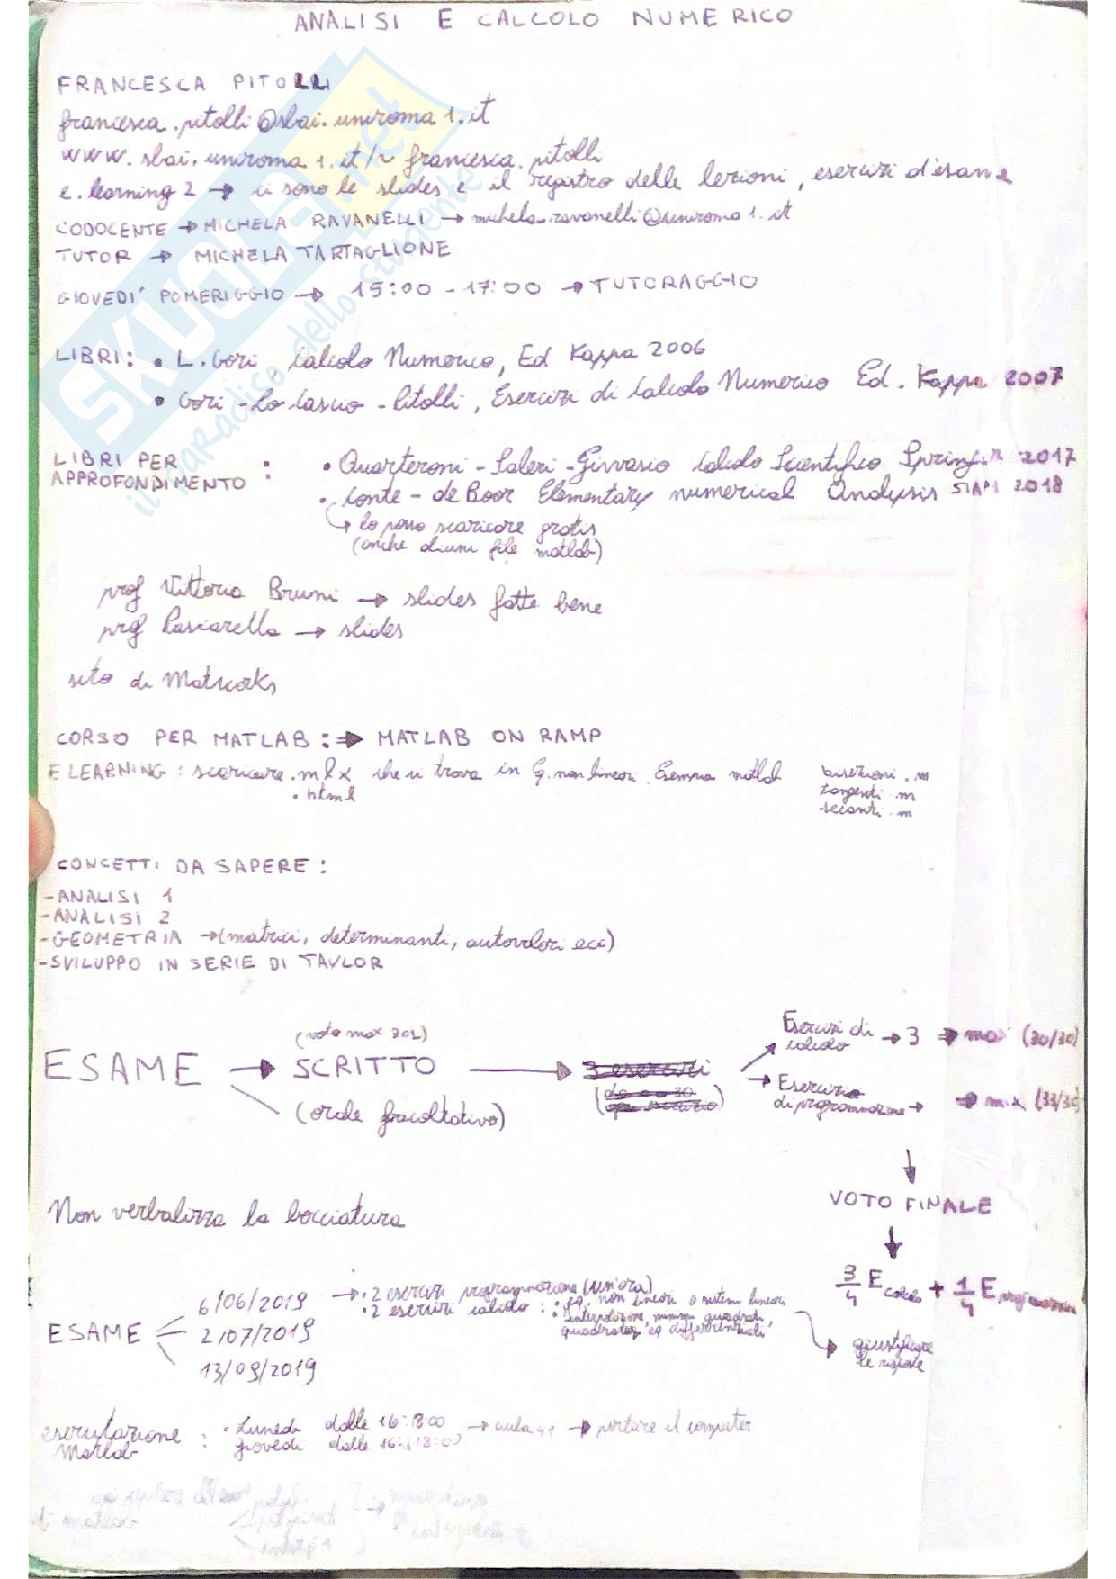 ANALISI E CALCOLO NUMERICO
FRANCESCA PITOLLI
francesca.pitolli@sbai.uniroma1.it
www.sbai.uniroma1.it/~francesca.pitolli
e.learning 2 → ci sono le slides e il registro delle lezioni, esercizi d'esame
CODOCENTE → MICHELA RAVANELLI → michela.ravanelli@uniroma1.it
TUTOR → MICHELA TARTAGLIONE
GIOVEDI' POMERIGGIO → 15:00 - 17:00 → TUTORAGGIO
LIBRI: • L. Gori Calcolo Numerico, Ed Kappa 2006
• Gori - Lo Cascio - Pitolli, Esercizi di Calcolo Numerico Ed. Kappa 2007
LIBRI PER APPROFONDIMENTO : • Quarteroni - Saleri - Gervasio Calcolo Scientifico, Springer 2017
• Conte - de Boor Elementary numerical Analysis SIAM 2018
↳ lo posso scaricare gratis
(anche alcuni file matlab)
prof Vittoria Bruni → slides fatte bene
prof Pascarella → slides
sito di Matworks
CORSO PER MATLAB : ⇒ MATLAB ON RAMP
E LEARNING : scaricare .mlx che si trova in Eq. non lineari Esempia matlab
• html
bisezioni .m
tangenti .m
secanti .m
CONCETTI DA SAPERE :
- ANALISI 1
- ANALISI 2
- GEOMETRIA → (matrici, determinanti, autovalori ecc)
- SVILUPPO IN SERIE DI TAYLOR
(voto max 30L)
ESAME → SCRITTO → 3 esercizi
(orale facoltativo)
Esercizi di calcolo → 3 ⇒ max (30/30)
→ Esercizio di programmazione → ⇒ max (33/30)
VOTO FINALE
3/4 E calcolo + 1/4 E programmazione
Non verbalizza la bocciatura
ESAME
6/06/2019
2/07/2019
13/09/2019
→ • 2 esercizi programmazione (
• 2 esercizi calcolo : • eq. non lineari o sistemi lineari
• interpolazione, minimi quadrati,
quadratura, eq differenziali
giustificare
le risposte
esercitazione Matlab : • Lunedì dalle 16-18:00 → aula 41 → portare il computer
giovedì dalle 16-(18:00)
SKUOLA.net
il paradiso dello studente